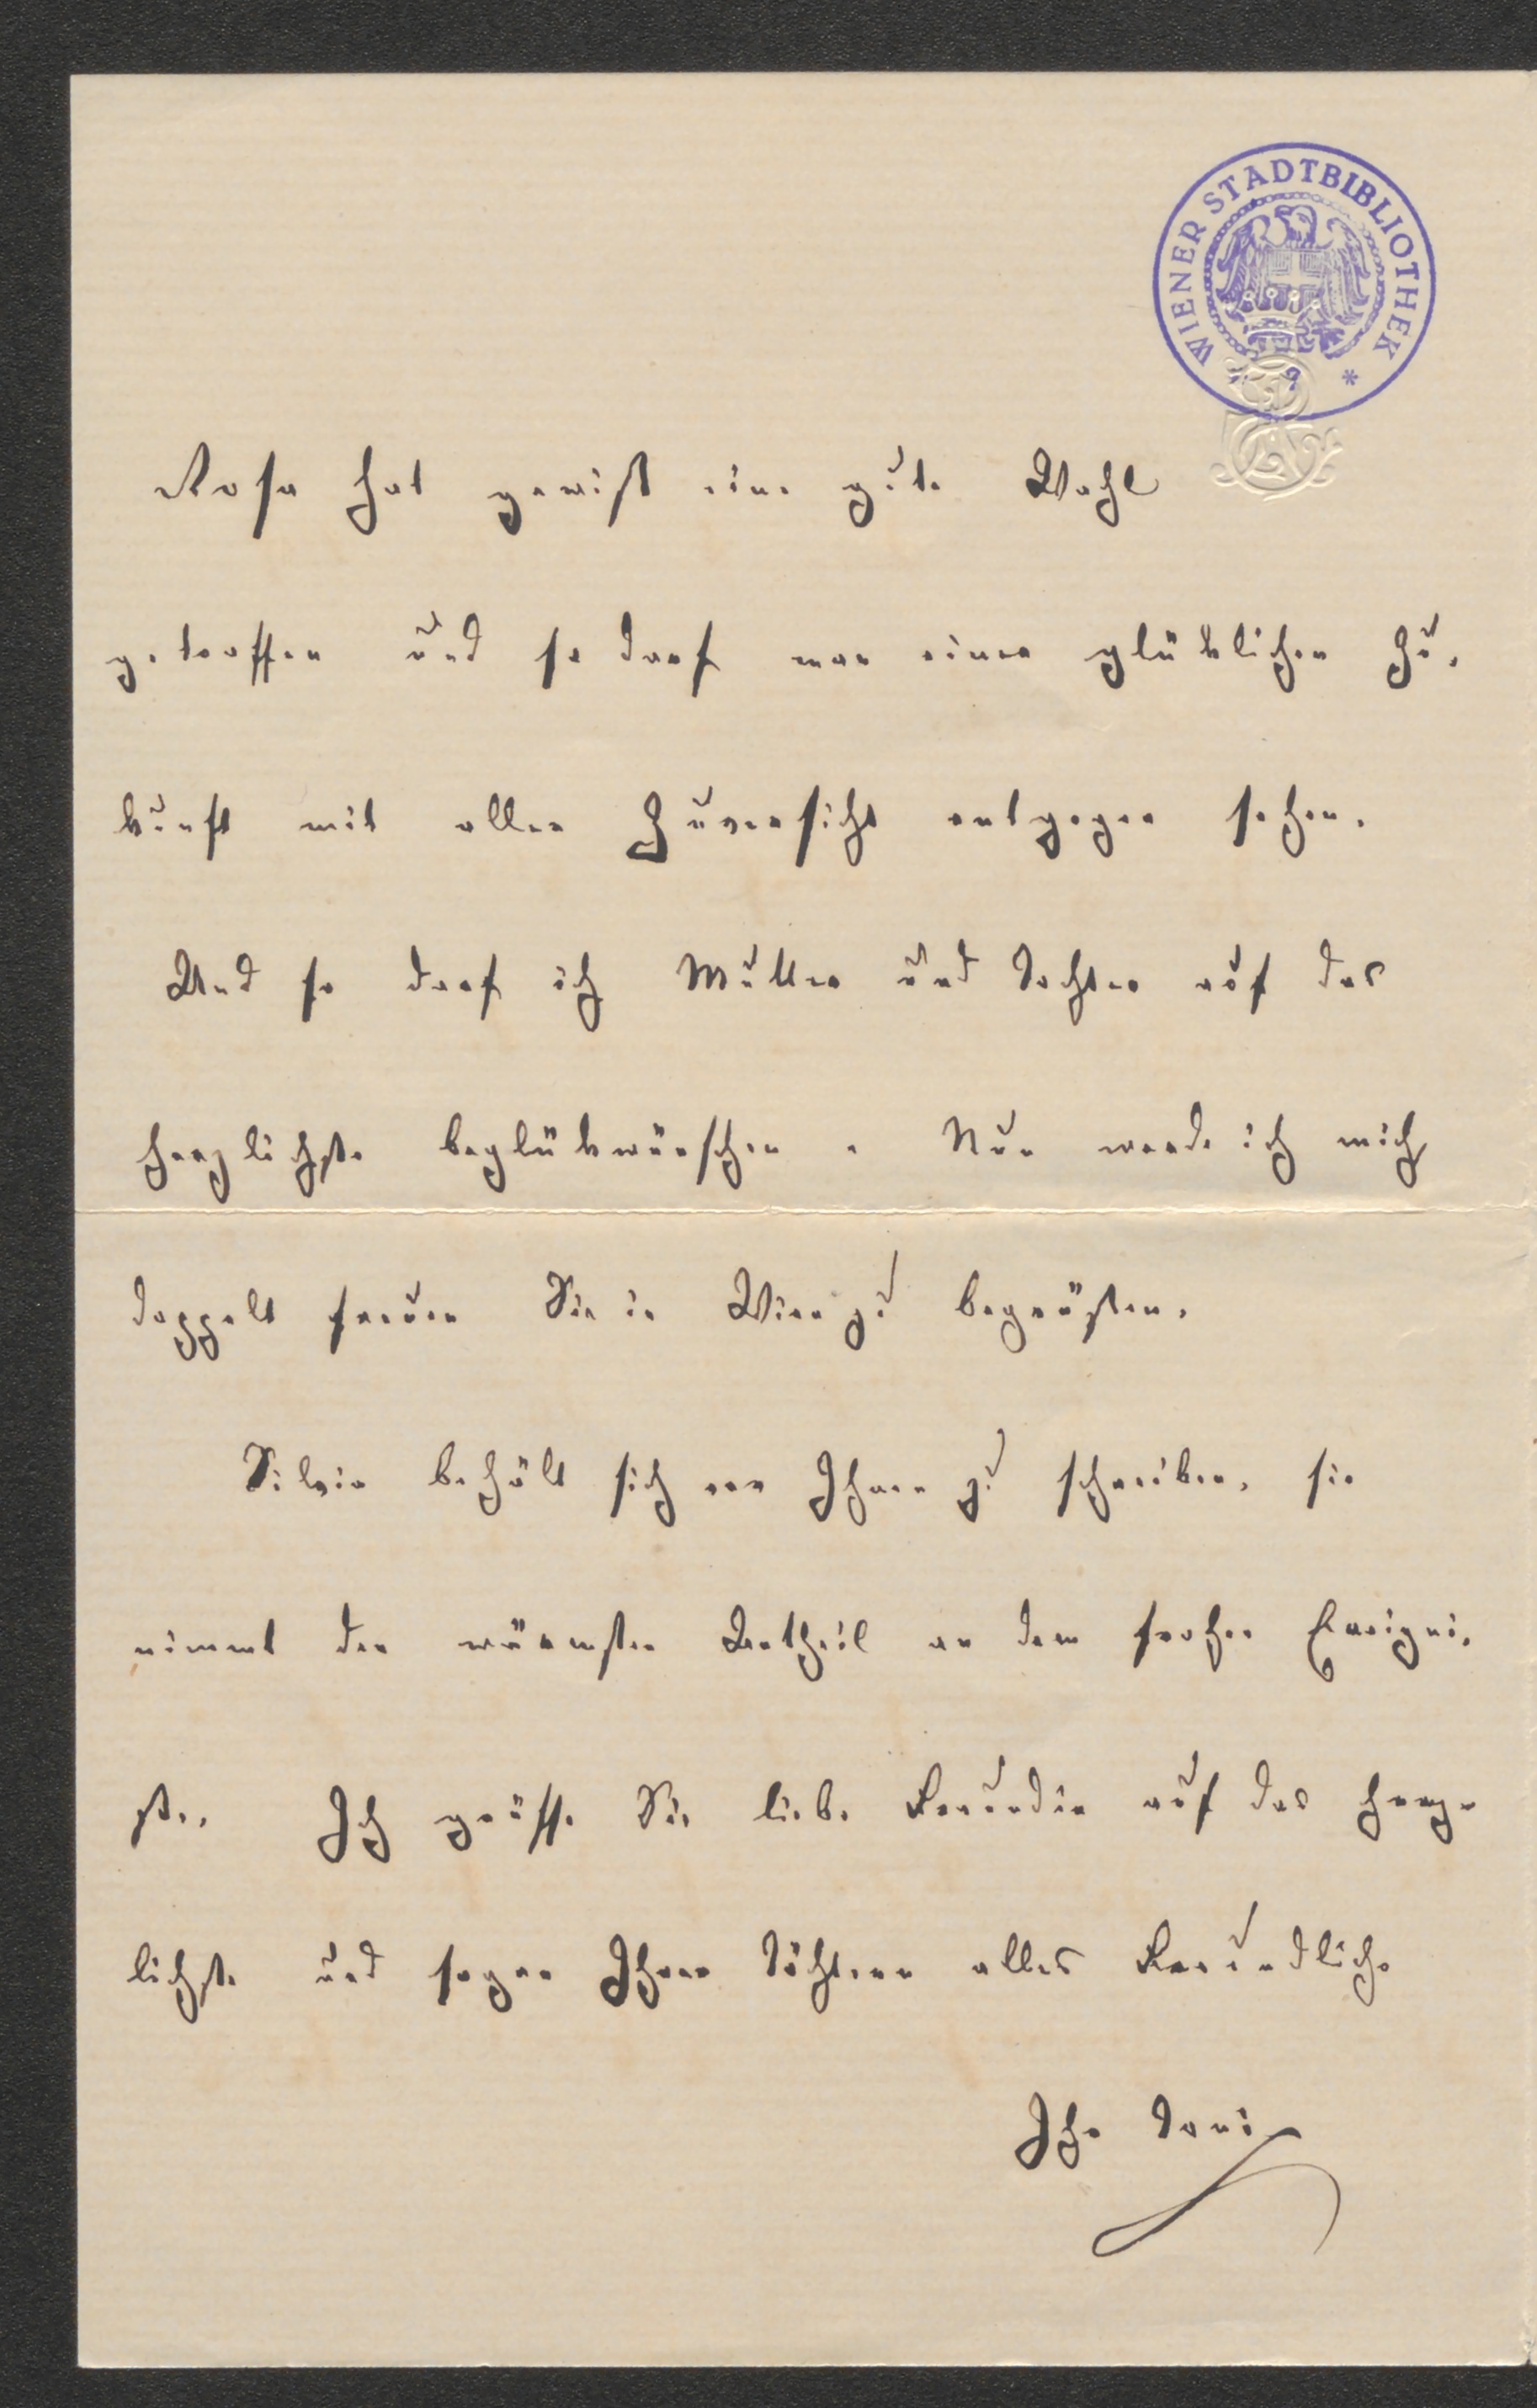 WIENER STADTBIBLIOTHEK *
Rosa hat gewiß eine gute Wahl
getroffen und so darf man einer glüklichen Zu-
kunft mit aller Zuversicht entgegen sehen.
Und so darf ich Mutter und Tochter auf das
herzlichste beglükwünschen. Nun werde ich mich
doppelt freuen Sie in Wien zu begrüßen.
Silvia behält sich vor Ihnen zu schreiben, sie
nimmt den wärmsten Antheil an dem frohen Ereigni-
ße. Ich grüsse Sie liebe Freundin auf das herz-
lichste und sagen Ihren Töchtern alles Freundliche
Ihr Toni